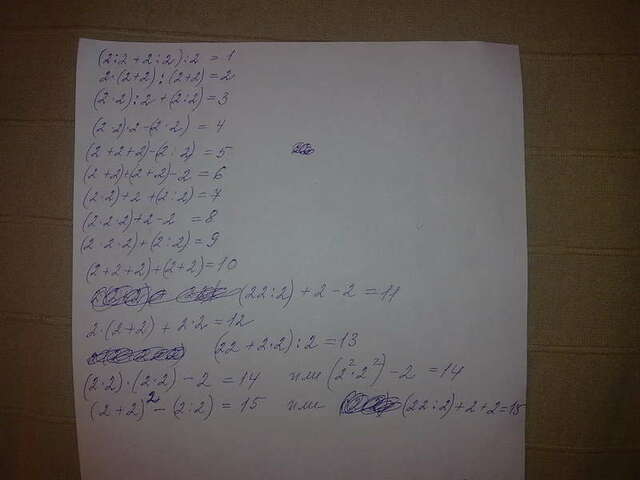 (2:2+2:2):2 = 1
2·(2+2):(2+2)=2
(2·2):2+(2:2)=3
(2·2)·2-(2·2) = 4
(2+2+2)-(2:2) = 5
(2+2)+(2+2)-2 = 6
(2·2)+2+(2:2)=7
(2·2·2)+2-2 = 8
(2·2·2)+(2:2)=9
(2+2+2)+(2+2)=10
(22:2)+2-2=11
2·(2+2)+2·2=12
(22+2·2):2=13
(2·2)·(2·2)-2 = 14 или (2²·2²)-2 = 14
(2+2)²-(2:2) = 15 или (22:2)+2+2=15